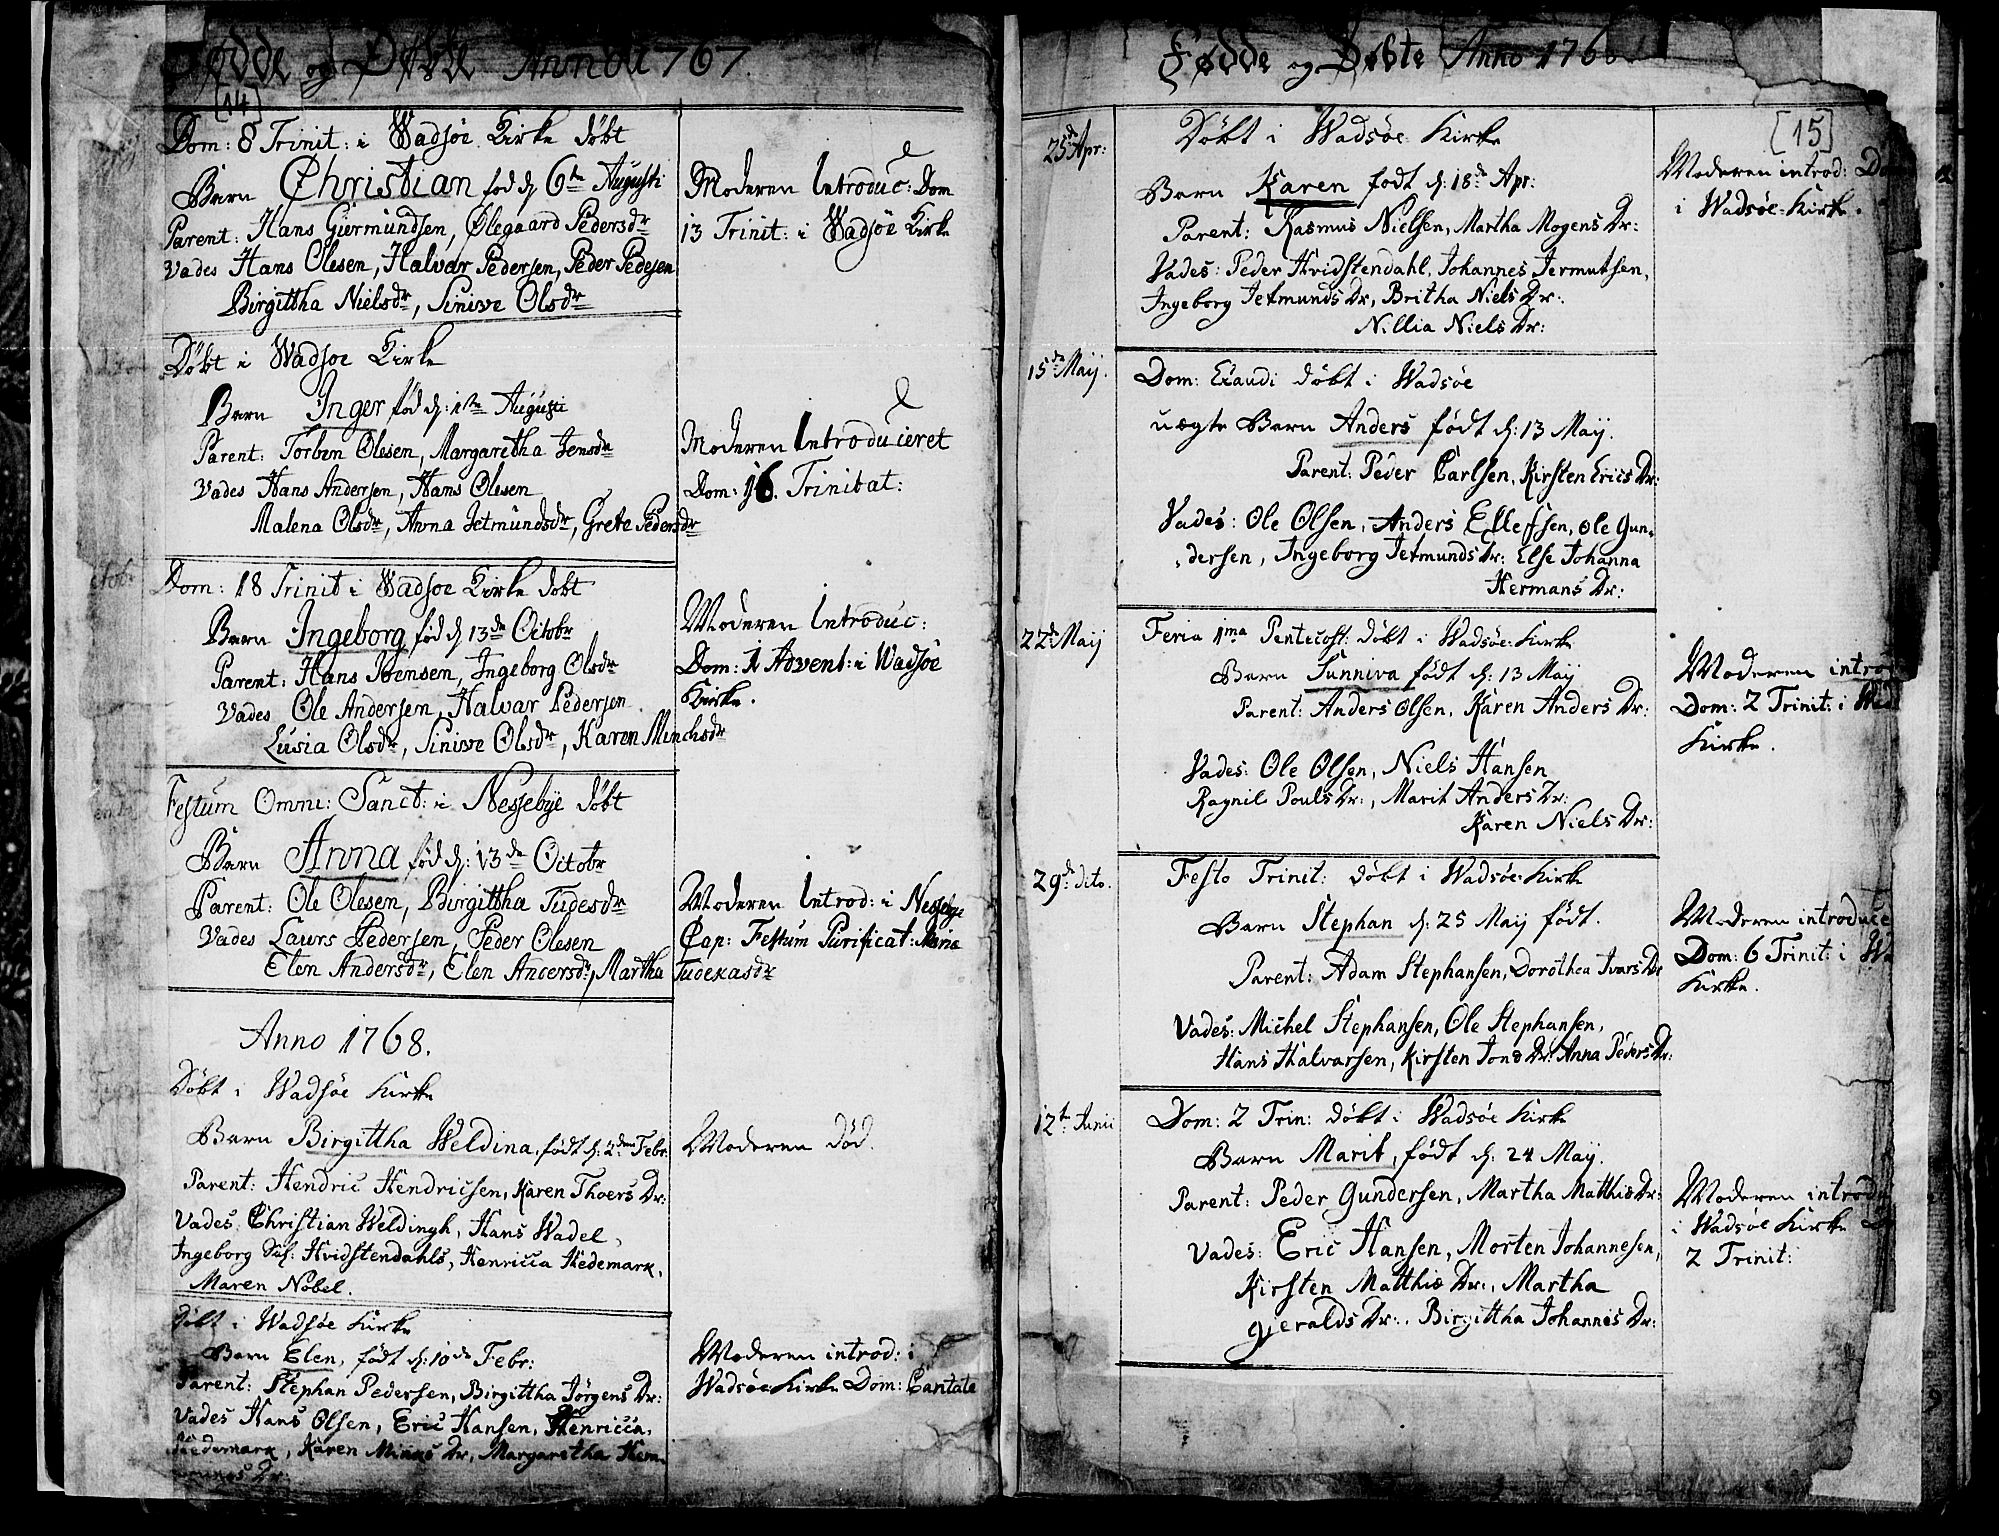 Fødde og Døbte Anno 1767.
[14]
Dom: 8 Trinit: i Wadsøe Kirke døbt
Barn Christian fød d. 6te Augusti
Parent: Hans Giermundsen, Ølegaard Pedersdr
Vades Hans Olesen, Halvar Pedersen, Peder Pedesen
Birgittha Nielsdr, Sinive Olsdr
Moderen Introduc: Dom
13 Trinit: i Wadsøe Kirke
Døbt i Wadsøe Kirke
Barn Inger fød d: 1te Augusti
Parent: Torben Olesen, Margaretha Jensdr
Vades Hans Andersen, Hans Olesen
Malena Olsdr, Anna Jetmundsdr, Grete Pedersdr
Moderen Introduceret
Dom: 16. Trinitat:
Dom: 18 Trinit i Wadsøe Kirke døbt
Barn Ingeborg fød d 13de Octobr
Parent: Hans Joensen, Ingeborg Olsdr
Vades Ole Andersen, Halvar Pedersen
Lusia Olsdr, Sinive Olsdr, Karen Minchsdr
Moderen Introduc:
Dom: 1 Advent: i Wadsöe
Kirke.
Festum Omni: Sanct: i Nessebye døbt
Barn Anna fød d: 13de Octobr
Parent: Ole Olesen, Birgittha Tudesdr
Vades Laurs Pedersen, Peder Olesen
Elen Andersdr, Elen Andersdr, Martha Tudexasdr
Moderen Introd: i Nessebye
Cap: Festum Purificat: Mariæ
Anno 1768.
Døbt i Wadsöe Kirke
Barn Birgittha Weldina, født d: 2den Febr.
Parent: Hendric Hendricsen, Karen Thoers Dr:
Vades Christian Weldingh, Hans Wadel,
Ingeborg Hvidstendahls, Henricca Hedemark,
Maren Nobel.
Moderen død.
Døbt i Wadsøe Kirke
Barn Elen, født d: 10de Febr:
Parent: Stephan Pedersen, Birgittha Jørgens Dr:
Vades Hans Olsen, Eric Hansen, Henricca,
Hedemark, Karen Minks Dr, Margaretha Hem-
Dr:
Moderen introd: i
Wadsøe Kirke Dom: Cantate
Fødde og Døbte Anno 1768
[15]
25de Apr:
Döbt i Wadsøe Kirke
Barn Karen født d: 18de Apr:
Parent: Rasmus Nielsen, Martha Mogens Dr:
Vades: Peder Hvidstendahl, Johannes Jermutsen,
Ingeborg Jetmunds Dr, Britha Niels Dr:
Nillia Niels Dr:
Moderen introd: Dom
i Wadsøe Kirke.
15de Maij.
Dom: Exaudi døbt i Wadsøe
uægte Barn Anders født d: 13 Maij.
Parent: Peder Carlsen, Kirsten Erics Dr:
Vades: Ole Olsen, Anders Ellefsen, Ole Gun-
dersen, Ingeborg Jetmunds Dr: Else Johanna
Hermans Dr:
22de Maij
Feria 1ma Pentecost: døbt i Wadsøe Kirke
Barn Sunniva født d: 13 Maij
Parent: Anders Olsen, Karen Anders Dr:
Vades: Ole Olsen, Niels Hansen
Ragnil Pouls Dr:, Marit Anders Dr:
Karen Niels Dr:
Moderen introd
Dom: 2 Trinit: i Wad
Kirke.
29de dito.
Festo Trinit: døbt i Wadsøe Kirke
Barn Stephan d: 25 Maij født.
Parent: Adam Stephansen, Dorothea Ivars Dr
Vades: Michel Stephansen, Ole Stephansen,
Hans Halvarsen, Kirsten Jons Dr: Anna Peders Dr:
Moderen introduce
Dom: 6 Trinit: i Wa
Kirke.
12te Junii
Dom: 2 Trin: døbt i Wadsøe Kirke
Barn Marit, født d: 24 Maij.
Parent: Peder Gundersen, Martha Matthis Dr:
Vades: Eric Hansen, Morten Johannesen,
Kirsten Matthis Dr:, Martha
Gjeralds Dr:. Birgittha Johannes Dr:
Moderen introd
i Wadsøe Kirke
2 Trinit: